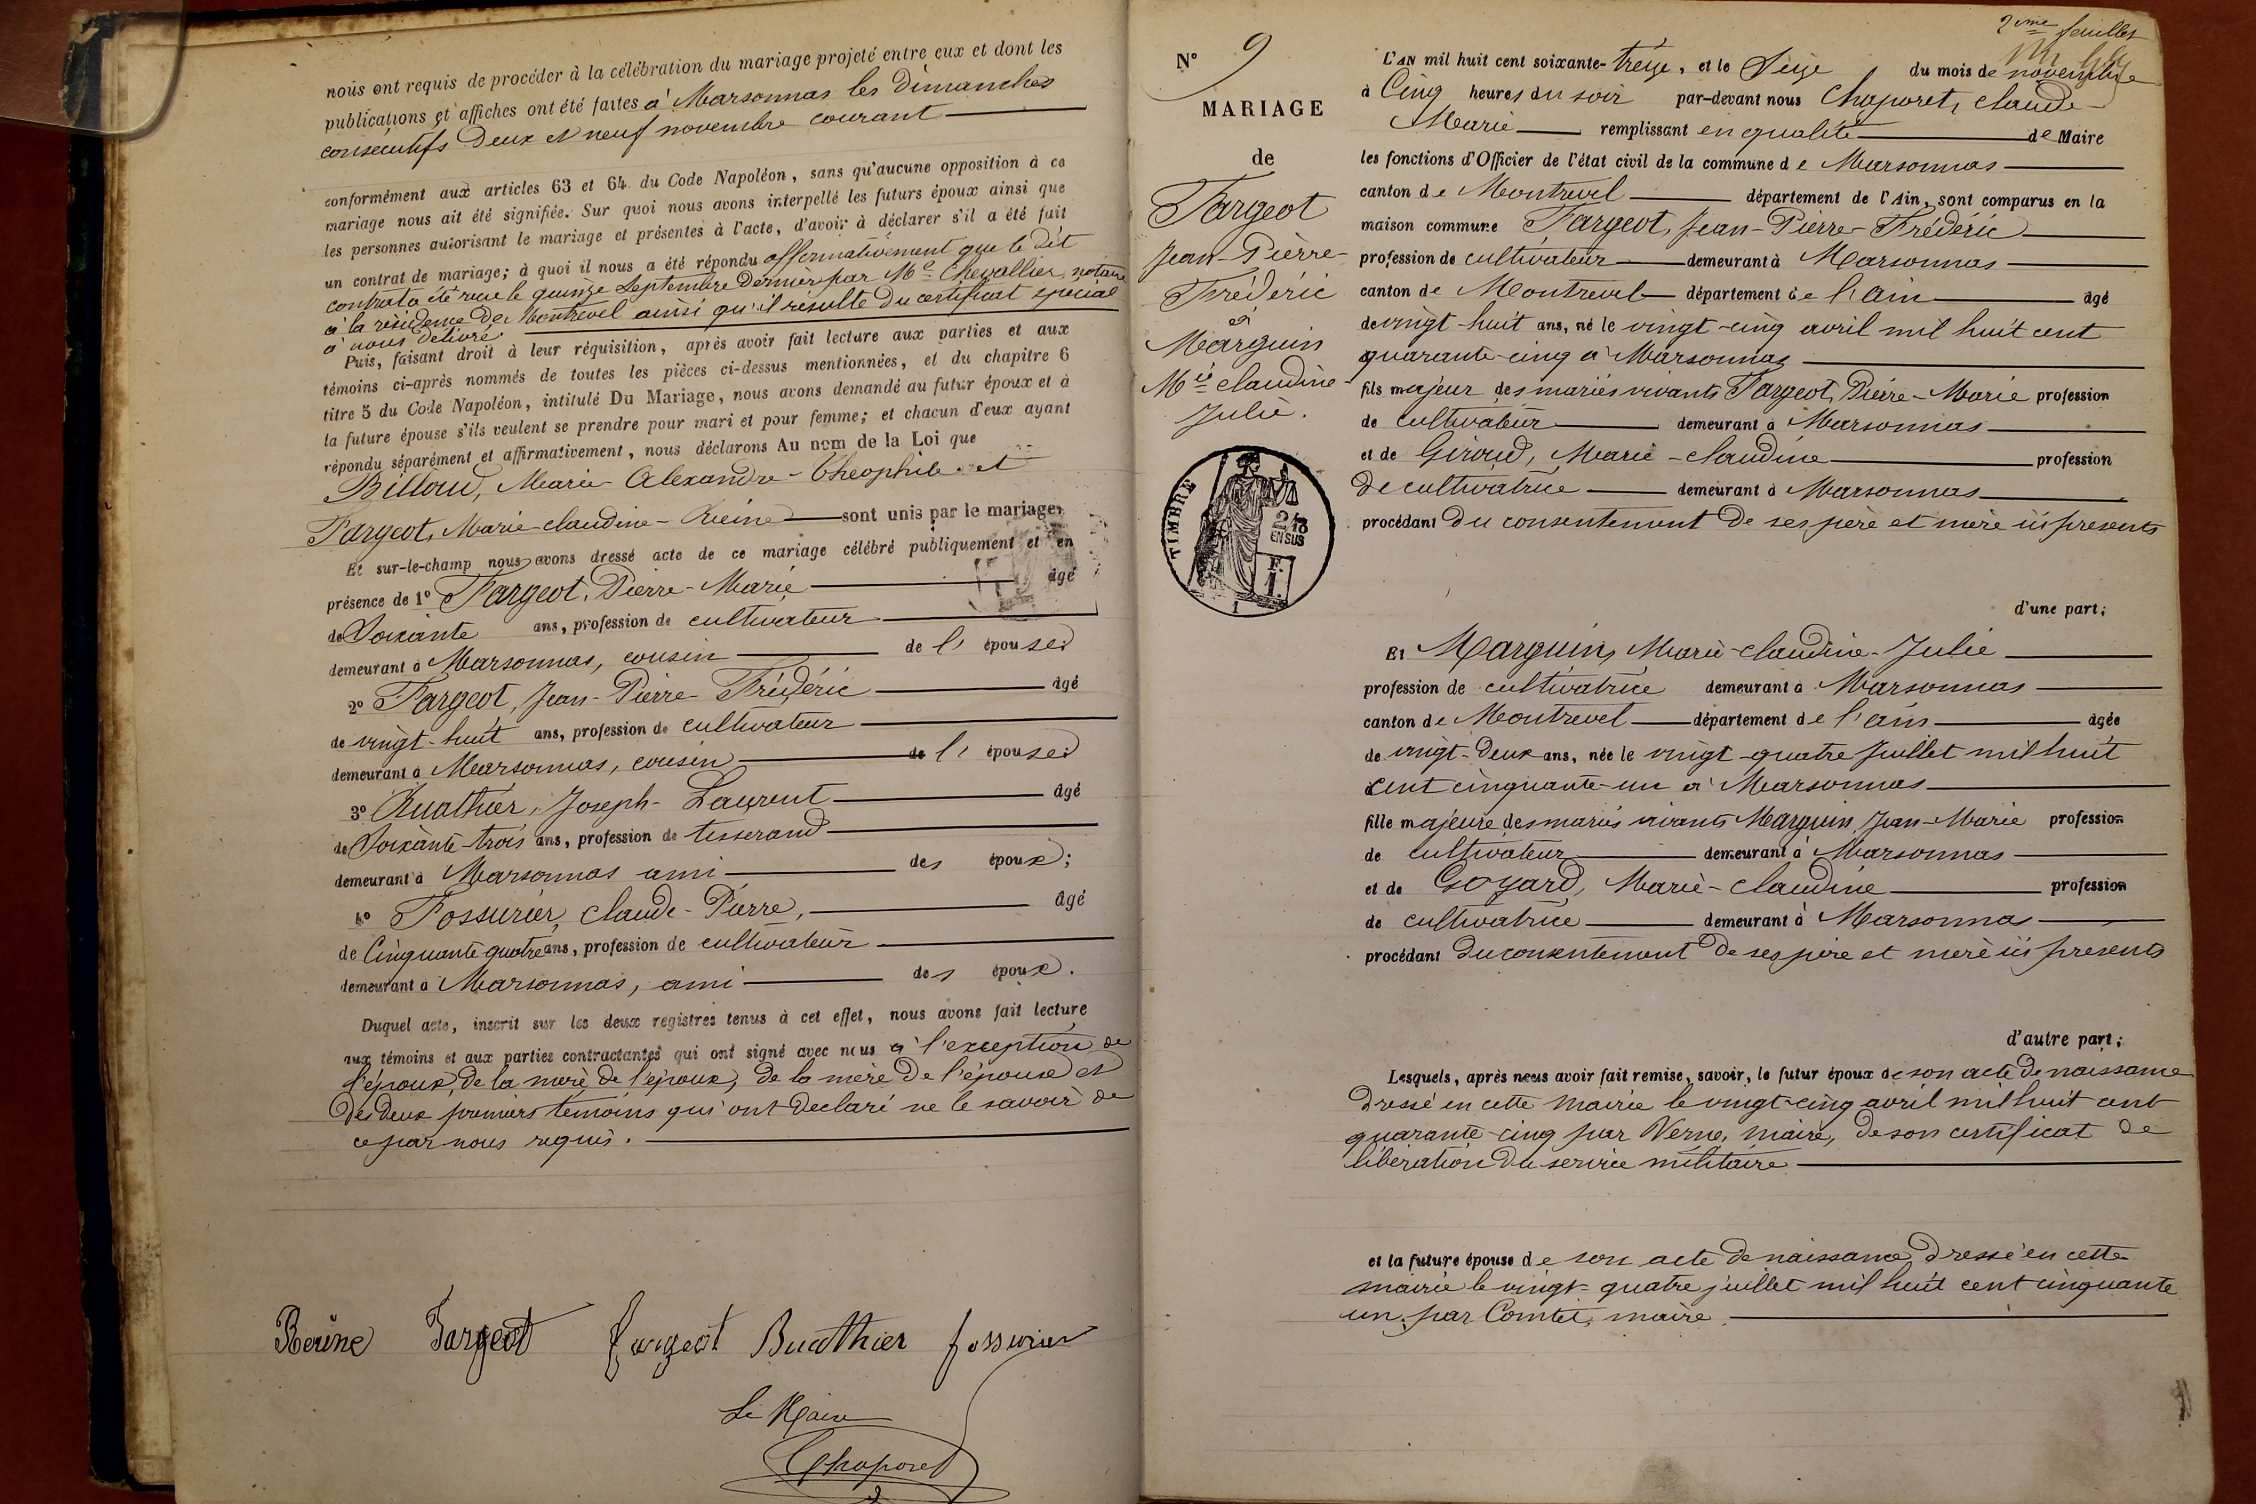 nous ont requis de procéder à la célébration du mariage projeté entre eux et dont les
publications et affiches ont été faites à Marsonnas les dimanches
consécutifs deux et neuf novembre courant
conformément aux articles 63 et 64 du Code Napoléon, sans qu'aucune opposition à ce
mariage nous ait été signifiée. Sur quoi nous avons interpellé les futurs époux ainsi que
les personnes autorisant le mariage et présentes à l'acte, d'avoir à déclarer s'il a été fait
un contrat de mariage; à quoi il nous a été répondu affirmativement que le dit
contrat a été reçu le quinze Septembre dernier par Me Chevallier, notaire
à la résidence de Montrevel ainsi qu'il résulte du certificat spécial
à nous délivré
Puis, faisant droit à leur réquisition, après avoir fait lecture aux parties et aux
témoins ci-après nommés de toutes les pièces ci-dessus mentionnées, et du chapitre 6
titre 5 du Code Napoléon, intitulé Du Mariage, nous avons demandé au futur époux et à
la future épouse s'ils veulent se prendre pour mari et pour femme; et chacun d'eux ayant
répondu séparément et affirmativement, nous déclarons Au nom de la Loi que
Billoud, Marie-Alexandre-Théophile et
Fargeot, Marie-claudine-Reine sont unis par le mariage.
Et sur-le-champ nous avons dressé acte de ce mariage célébré publiquement et en
présence de 1° Fargeot, Pierre-Marie âgé
de Soixante ans, profession de cultivateur
demeurant à Marsonnas, cousin de l' épouse;
2° Fargeot, Jean-Pierre-Frédéric âgé
de vingt-huit ans, profession de cultivateur
demeurant à Marsonnas, cousin de l' épouse;
3° Buathier, Joseph-Laurent âgé
de Soixante-trois ans, profession de tisserand
demeurant à Marsonnas ami des époux;
4° Fossurier, claude-Pierre, âgé
de Cinquante quatre ans, profession de cultivateur
demeurant à Marsonnas, ami des époux.
Duquel acte, inscrit sur les deux registres tenus à cet effet, nous avons fait lecture
aux témoins et aux parties contractantes qui ont signé avec nous à l'exception de
l'époux, de la mère de l'époux, de la mère de l'épouse et
des deux premiers témoins qui ont déclaré ne le savoir de
ce par nous requis.
Reine Fargeot fargeot Buathier fossurier
Le Maire
Chaporet
2me feuillet
N° 9
MARIAGE
de
Fargeot
Jean-Pierre-
Frédéric
et
Marguin
Mie claudine-
Julie.
TIMBRE
2/10
EN SUS
F.
1.
1
L'AN mil huit cent soixante-treize, et le Seize du mois de novembre
à Cinq heures du soir par-devant nous Chaporet, claude-
Marie remplissant en qualité de Maire
les fonctions d'Officier de l'état civil de la commune de Marsonnas
canton de Montrevel département de l'Ain, sont comparus en la
maison commune Fargeot, Jean-Pierre-Frédéric
profession de cultivateur demeurant à Marsonnas
canton de Montrevel département de l'ain âgé
de vingt-huit ans, né le vingt-cinq avril mil huit cent
quarante-cinq à Marsonnas
fils majeur des mariés vivants Fargeot, Pierre-Marie profession
de cultivateur demeurant à Marsonnas
et de Giroud, Marie-claudine profession
de cultivatrice demeurant à Marsonnas
procédant du consentement de ses père et mère ici présents
d'une part;
Et Marguin, Marie-claudine-Julie
profession de cultivatrice demeurant à Marsonnas
canton de Montrevel département de l'ain âgée
de vingt-deux ans, née le vingt-quatre Juillet mil huit
cent cinquante-un à Marsonnas
fille majeure des mariés vivants Marguin, Jean-Marie profession
de cultivateur demeurant à Marsonnas
et de Goyard, Marie-claudine profession
de cultivatrice demeurant à Marsonna
procédant du consentement de ses père et mère ici présents
d'autre part;
Lesquels, après nous avoir fait remise, savoir, le futur époux de son acte de naissance
dressé en cette mairie le vingt-cinq avril mil huit cent
quarante-cinq par Verne, maire, de son certificat de
libération du service militaire
et la future épouse de son acte de naissance dressé en cette
mairie le vingt-quatre juillet mil huit cent cinquante
un par Comtet, maire.